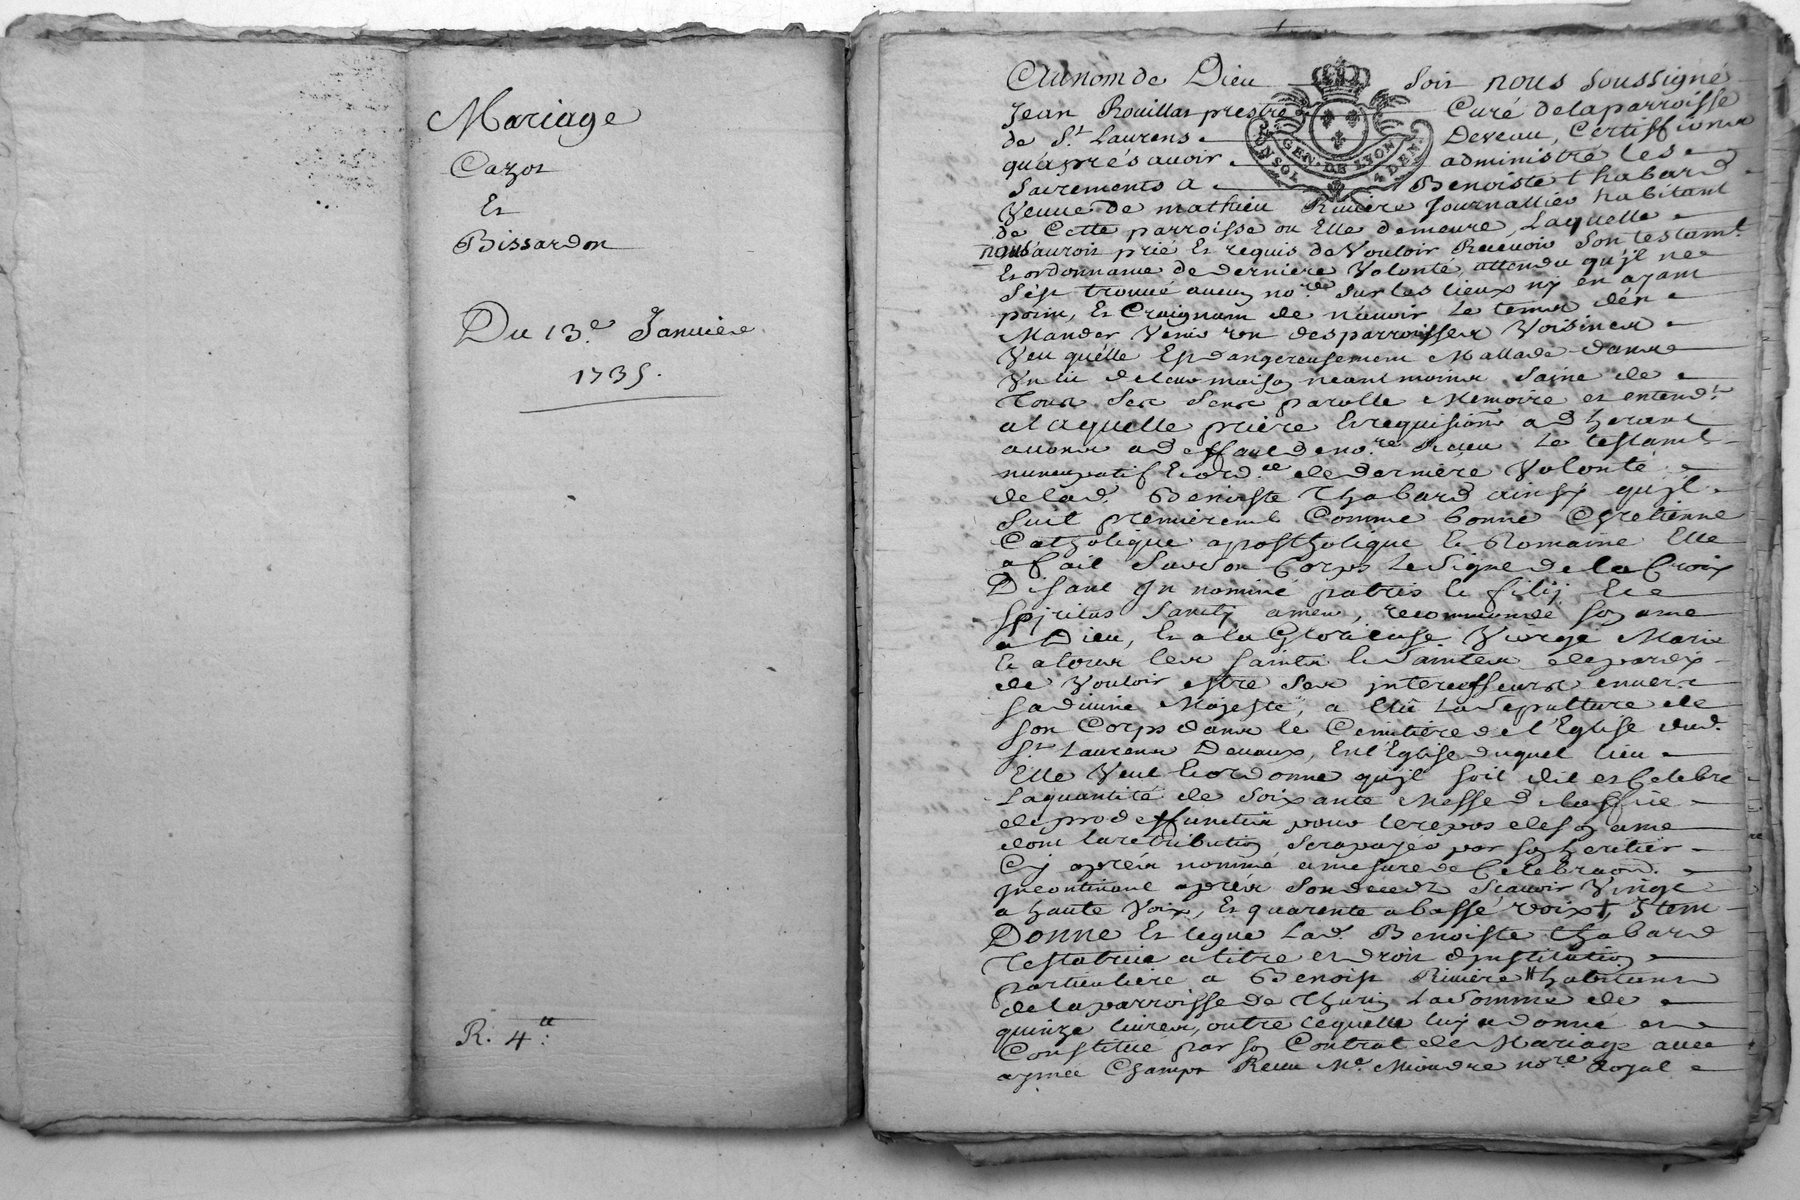 Mariage
Cazot
Et
Bissardon
Du 13.e Janvier
1735.
R. 4
Au nom de Dieu soit nous soussigné
Jean Rouillas prestre Curé de la parroisse
de St. Laurens Deveau, Certiffions
qu'après avoir administré les
sacrements a Benoiste thabard
Veuve de mathieu Riviere Journallier habitant
de Cette parroisse ou Elle demeure, Laquelle
nous auroit prié Et requis de Vouloir Recevoir Son testamt.
Et ordonnance de derniere Volonté, attendu qu'jl ne
s'est trouvé aucun nore. Sur les lieux ny en ayant
point, Et Craignant de n'avoir Le tems d'en
Mander Venir des parroisses Voisines
Veu quelle Est dangereusement Mallade dans
Un lit de maison neantmoins Saine de
Tous Ses Sens parolle Memoire et entendt.
a laquelle priere Et requisition adherant
avons a deffaut de nore. Receu Le testamt.
nuncupatif Et ordce. de derniere Volonté
de lad. Benoiste Thabard ainsy qu'jl
suit premieremt. Comme bonne Chretienne
Catholique apostholique Et Romaine Elle
a fait Sur son Corps Le Signe de la Croix
Disant Jn nomine patris Et filij Et
spiritus Sancty amen, recommandé son ame
a Dieu, Et a la Glorieuse Vierge Marie
Et a tous les saints Et Saintes de paradix
de Vouloir estre Ses intercesseurs envers
sa divine Majesté, a Elû La Sepulture de
son Corps dans le Cimitiere de l'Eglise dud.
St. Laurens Devaux, En l'Eglise duquel lieu
Elle Veut Et ordonne qu'jl soit dit et Celebré
La quantité de soixante Messe de l'office
de pro deffunctis pour le repos de son ame
dont la retribution Sera payée par son heritier
Cy après nommé a mesure de Celebraon.
jncontinant après Son decedz Scavoir Vingt
a haute Voix, Et quarente a basse voix, Jtem
Donne Et legue Lad. Benoiste thabard
Testatrice a titre et droit d'jnstitution
particuliere a Benoist Riviere habitant
de la parroisse de Thurin La Somme de
quinze livres, outre Ce quelle luy a donné et
Constitué par son Contrat de Mariage avec
aymée Champt Receu Me. Miondre nore. Royal